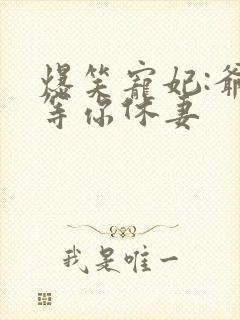 爆笑寵妃:爺
等你休妻
我是唯一